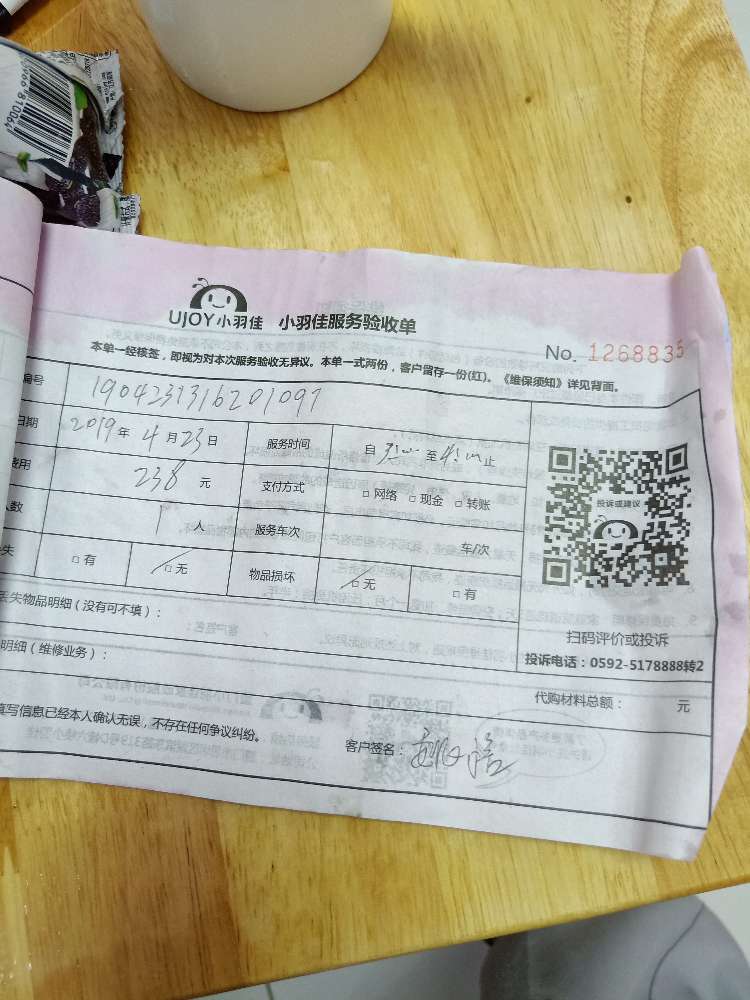 0966 81006
UJOY小羽佳 小羽佳服务验收单
No. 1268835
本单一经核签，即视为对本次服务验收无异议。本单一式两份，客户留存一份(红)。《维保须知》详见背面。
编号 1904231316201097
日期 2019年4月23日 服务时间 自 至 止
费用 238 元 支付方式 □网络 □现金 □转账
人数 1 人 服务车次 车/次
失 □有 □无 物品损坏 □无 □有
投诉或建议
扫码评价或投诉
投诉电话：0592-5178888转2
丢失物品明细(没有可不填)：
明细(维修业务)：
代购材料总额： 元
填写信息已经本人确认无误，不存在任何争议纠纷。 客户签名：